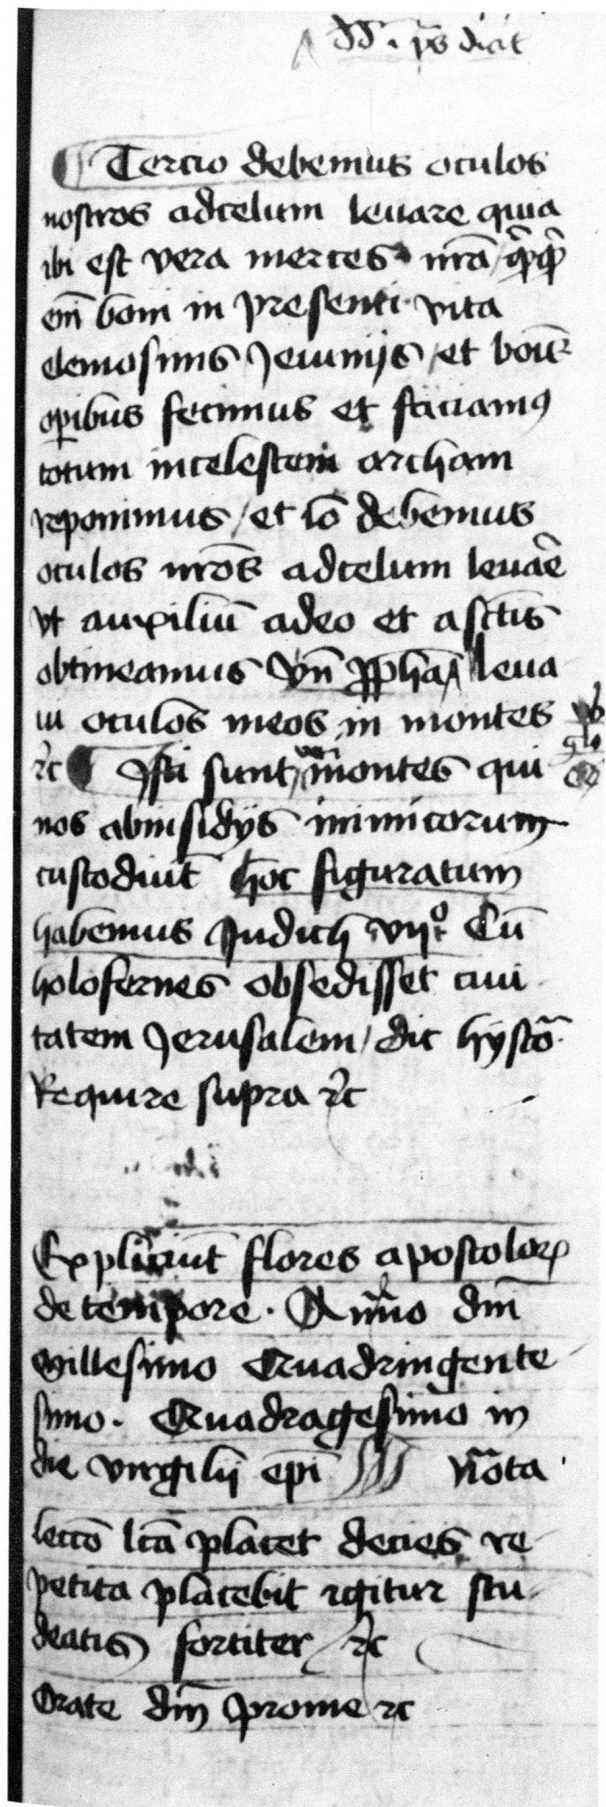 dicit
Tercio debemus oculos
nostros adcelum leuare quia
ibi est vera merces nr̄a
em̄ boni in presenti vita
elemosinis Jeiunijs et
oꝑibus fecimus et faciamꝰ
totum incelestem archam
reponimus / et debemus
oculos nr̄os adcelum leuar̄e
vt auxiliū adeo et asctīs
obtineamus leua
ui oculos meos in montes
ꝛc Isti sunt montes qui
nos abinsidijs inimicorum
custodiūt hoc figuratum
habemus Judich vijº Cū
holofernes obsedisset ciui
tatem Jerusalem / dic hystō
Require supra ꝛc
Expliciūt flores apostolorꝝ
de tempore . Anno dm̄
Millesimo Quadringente
simo . Quadragesimo in
die virgilij epī Nota
lectō lcā placet decies re
petita placebit igitur stu
deatis fortiter ꝛc
Orate dm̄ prome ꝛc